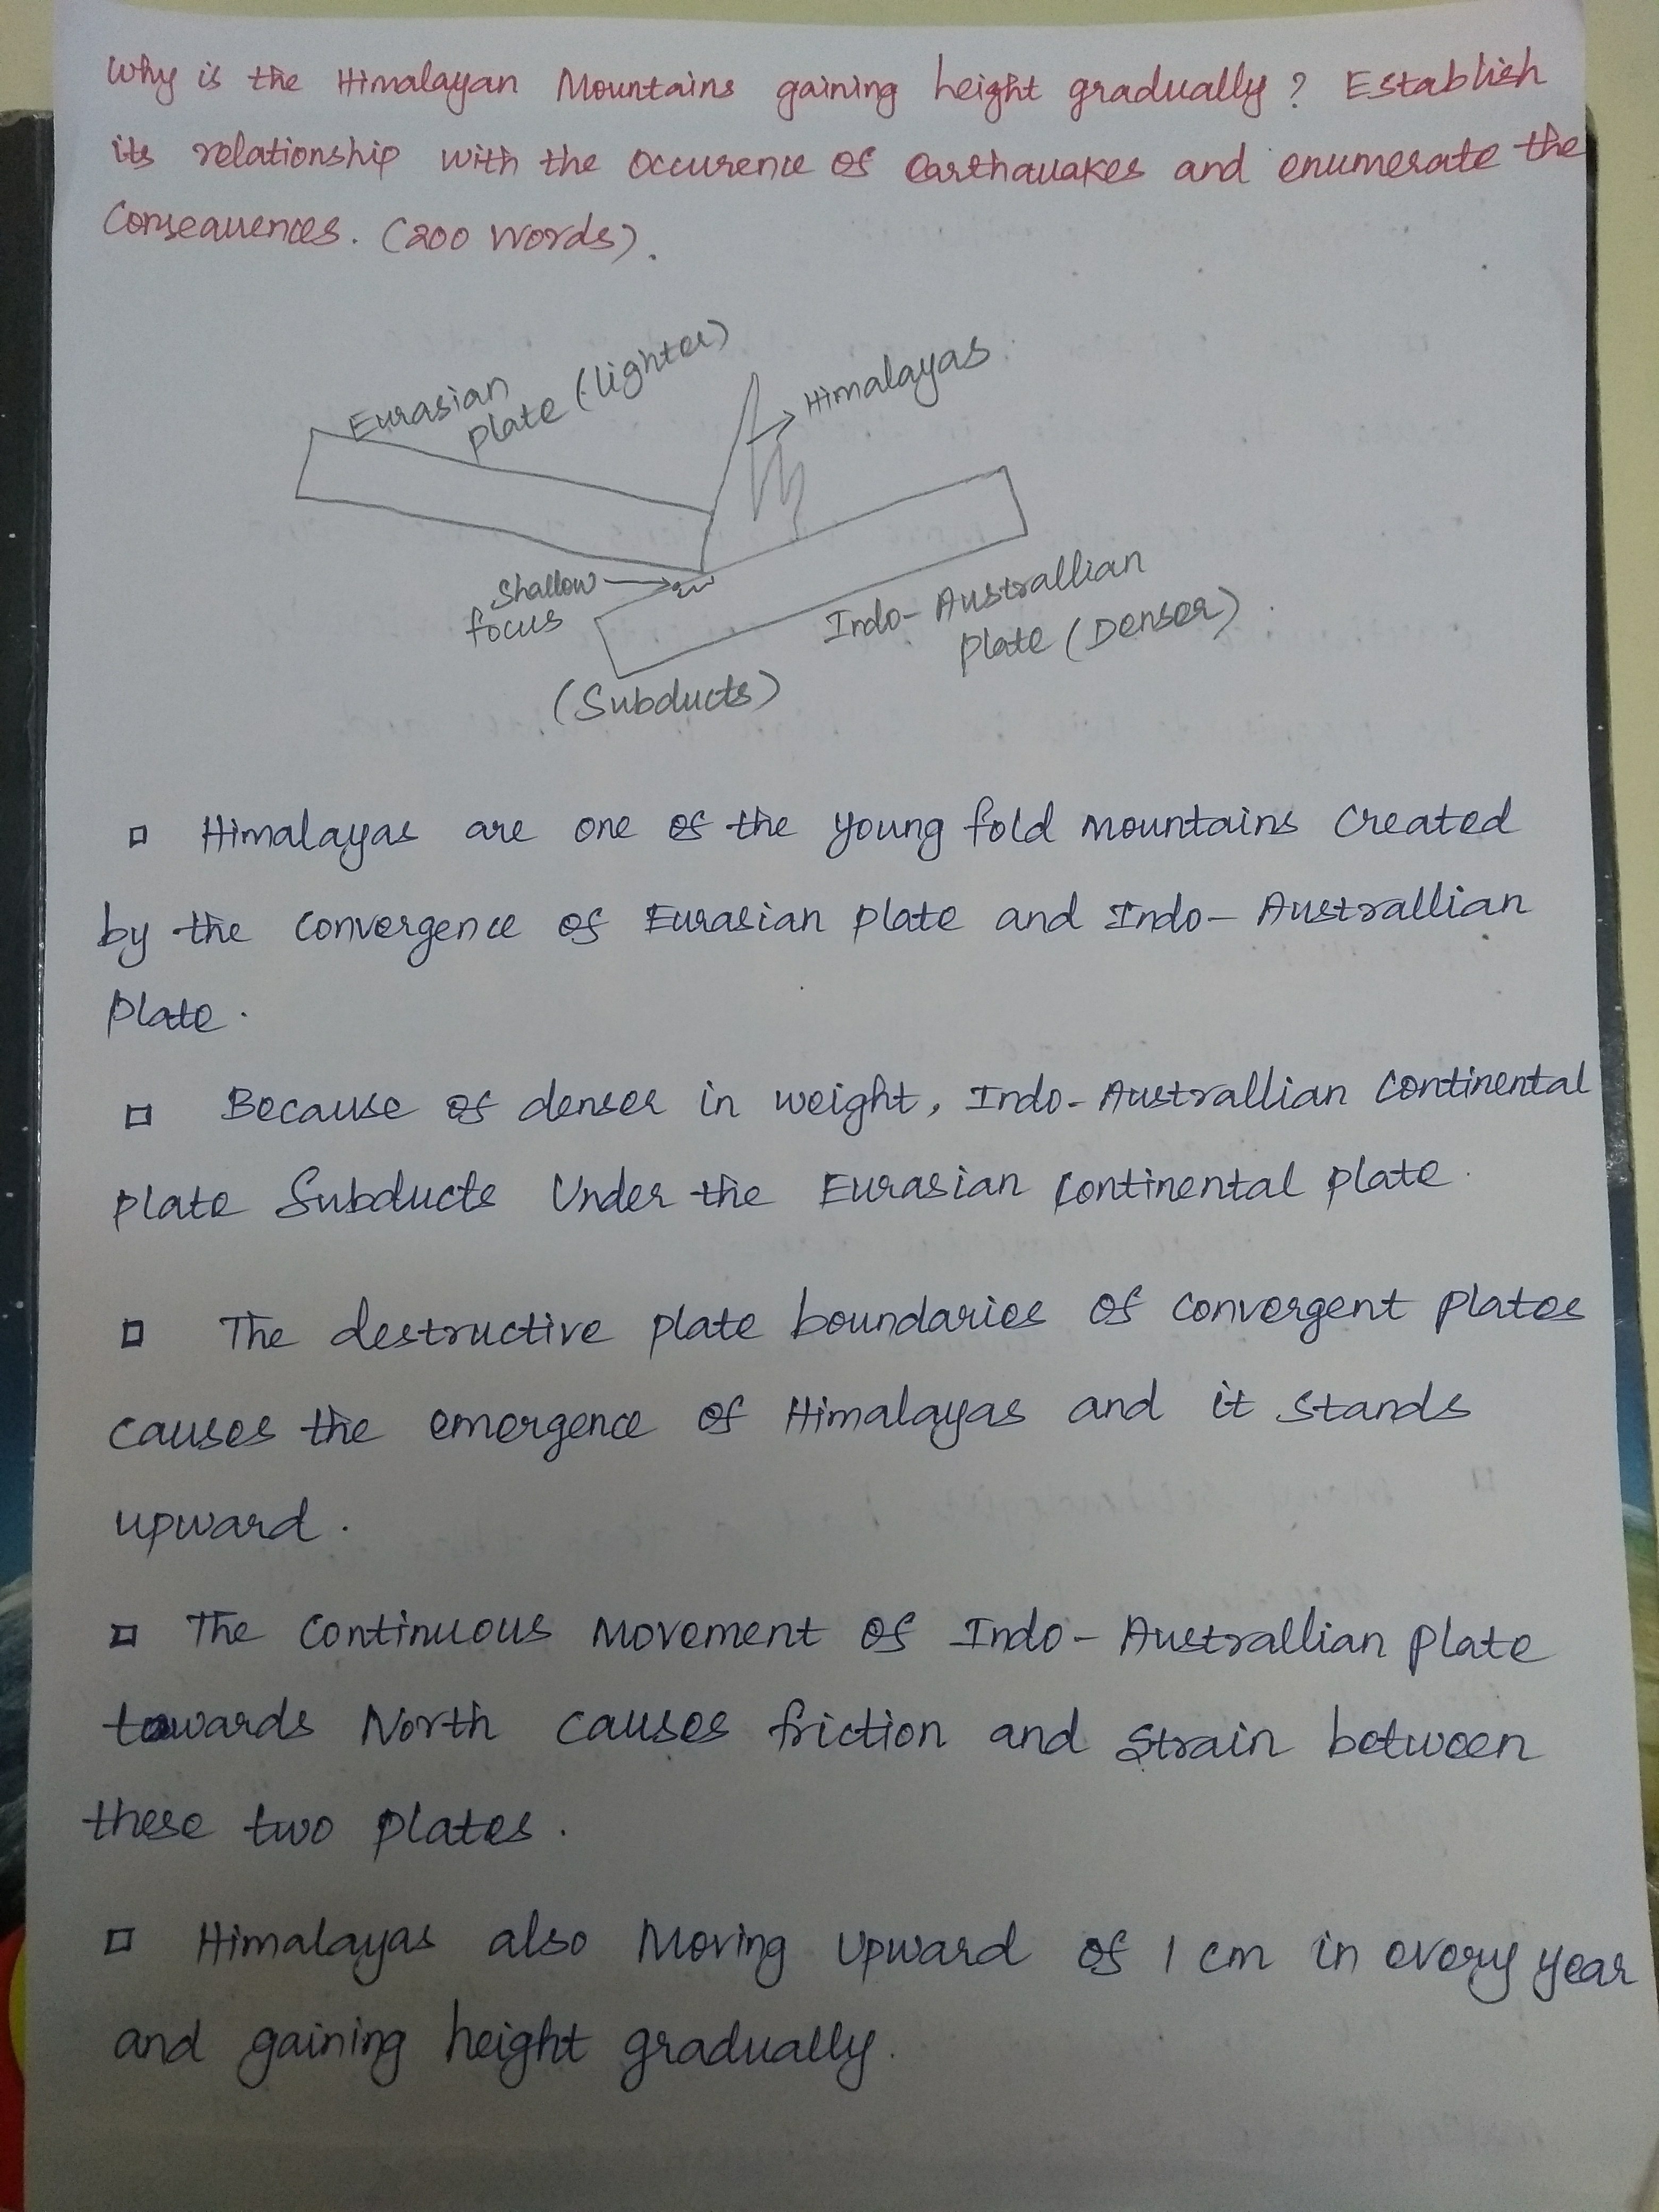 Why is the Himalayan Mountains gaining height gradually? Establish
its relationship with the occurence of earthquakes and enumerate the
Consequences. (200 words).
Eurasian
plate (lighter)
Himalayas
Shallow
focus
Indo-Australlian
plate (Denser)
(Subducts)
Himalayas are one of the young fold mountains created
by the convergence of Eurasian plate and Indo-Australlian
plate.
Because of denser in weight, Indo-Australlian continental
plate subducts under the Eurasian continental plate.
The destructive plate boundaries of convergent plates
causes the emergence of Himalayas and it stands
upward.
The continuous movement of Indo-Australlian plate
towards North causes friction and strain between
these two plates.
Himalayas also moving upward of 1 cm in every year
and gaining height gradually.